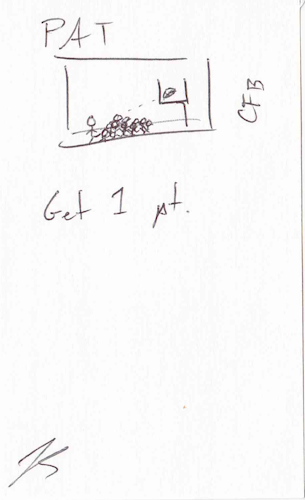 PAT
CFB
Get 1 pt.